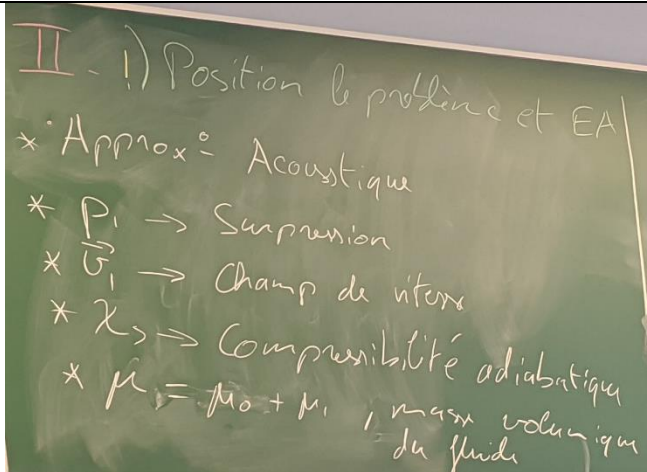 II - 1) Position le problème et EA
* Approx° : Acoustique
* P₁ → Surpression
* v⃗₁ → Champ de vitesse
* χₛ → Compressibilité adiabatique
* μ = μ₀ + μ₁ , masse volumique
du fluide